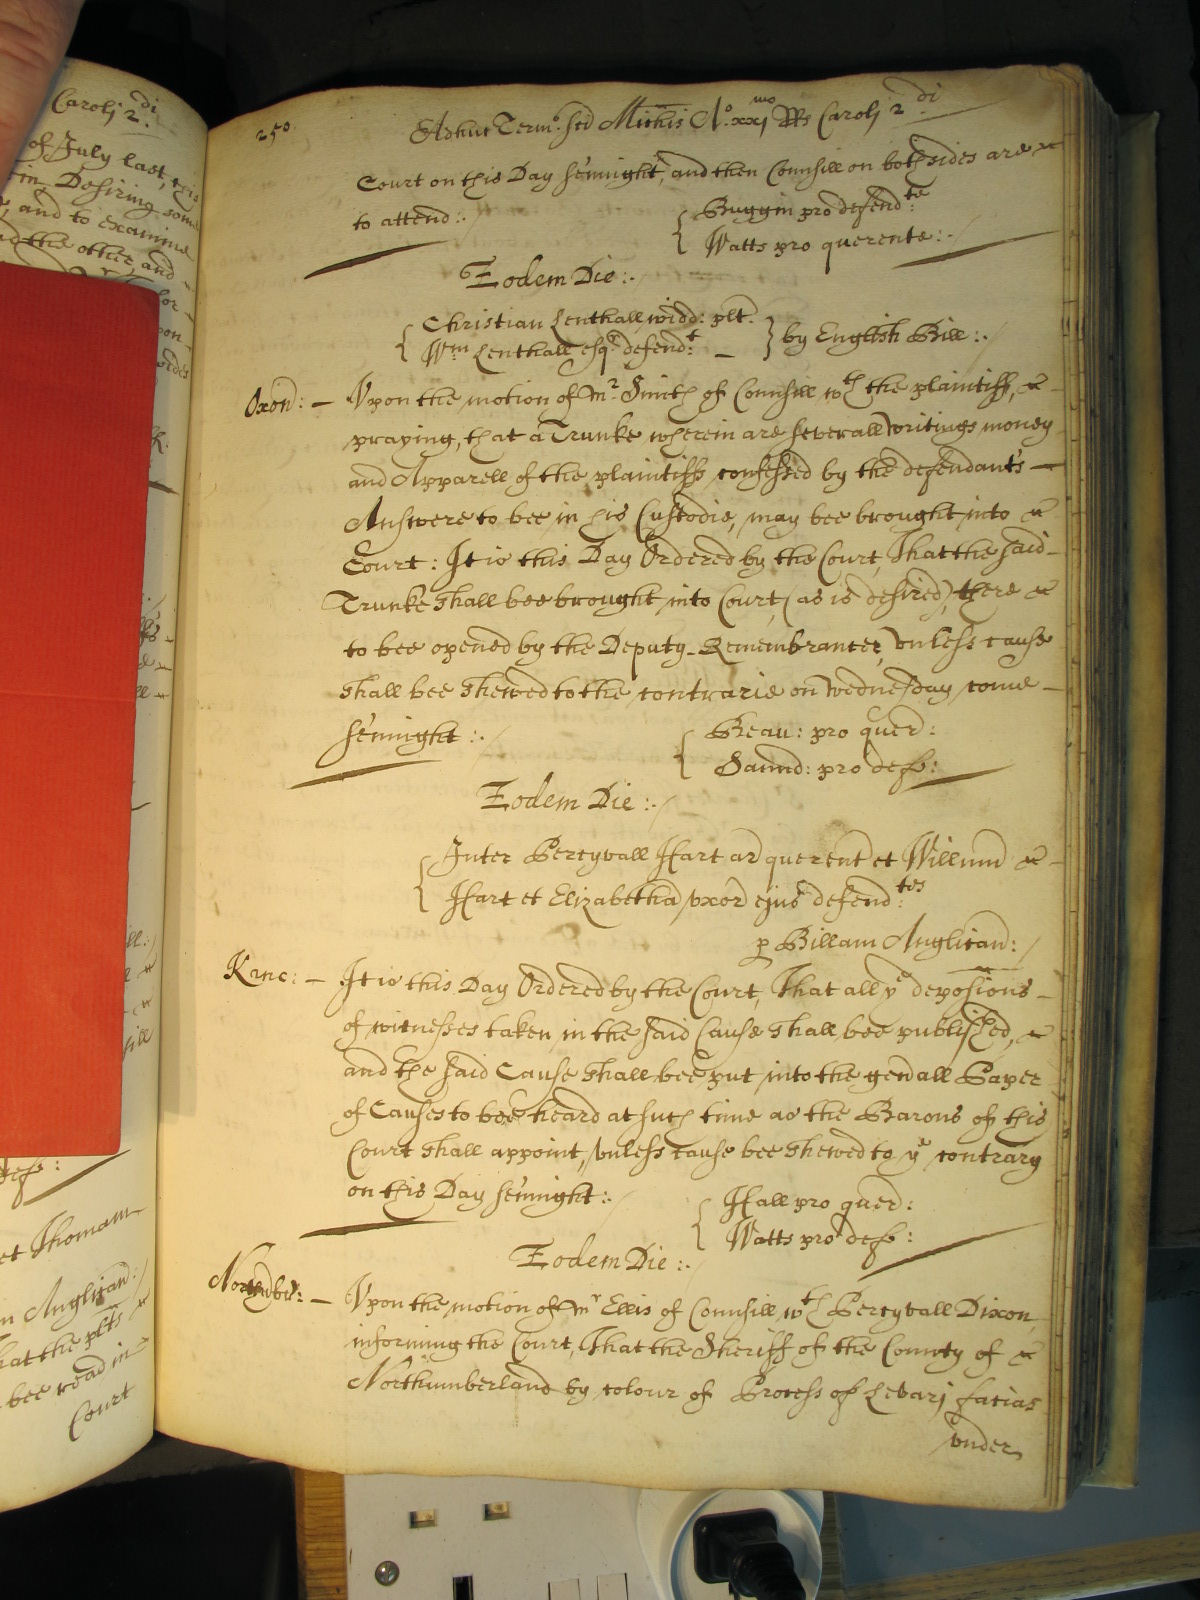 Carolj 2.di
of July last, this
in Desiring some
, and to examine
and the other, and
et Thomam
m Anglican:
hat the plts
bee read in
Court
250
Adhuc Term.o scd Michis A.o xxjmo RRs Carolj 2di
Court on this Day sennight, and then Counsill on both sides are
to attend:.
Buggin pro defend:te
Watts pro querente:.
Eodem Die:.
Christian Lenthall, widd: plt.
Wm Lenthall esqr defend:t
by English Bill:.
Oxon: – Vpon the motion of Mr Smith of Counsill wth the plaintiff,
praying, that a Trunke wherein are severall writings money
and Apparell of the plaintiffs confessed by the defendants –
Answere to bee in his Custodie, may bee brought into
Court: It is this Day Ordered by the Court, That the said
Trunke shall bee brought into Court, (as is desired) there
to bee opened by the Deputy-Remembrancer, vnless cause
shall bee shewed to the contrarie on wednesday come –
sennight:.
Beau: pro quer:
Saund: pro def:
Eodem Die:.
Inter Percyvall Hart ar querent et Willum
Hart et Elizabetha vxor ejus defend:tes
p Billam Anglican:
Kanc: – It is this Day Ordered by the Court, That all ye deposions –
of witnesses taken in the said Cause shall bee published,
and the said Cause shall bee put into the genall Paper
of Causes to bee heard at such time as the Barons of this
Court shall appoint, vnless cause bee shewed to ye contrary
on this Day sennight:.
Hall pro quer:
Watts pro def:
Eodem Die:.
– Vpon the motion of Mr Ellis of Counsill wth Percyvall Dixon,
informing the Court, That the Sheriff of the County of
Northumberland by colour of Process of Levarj facias
vnder